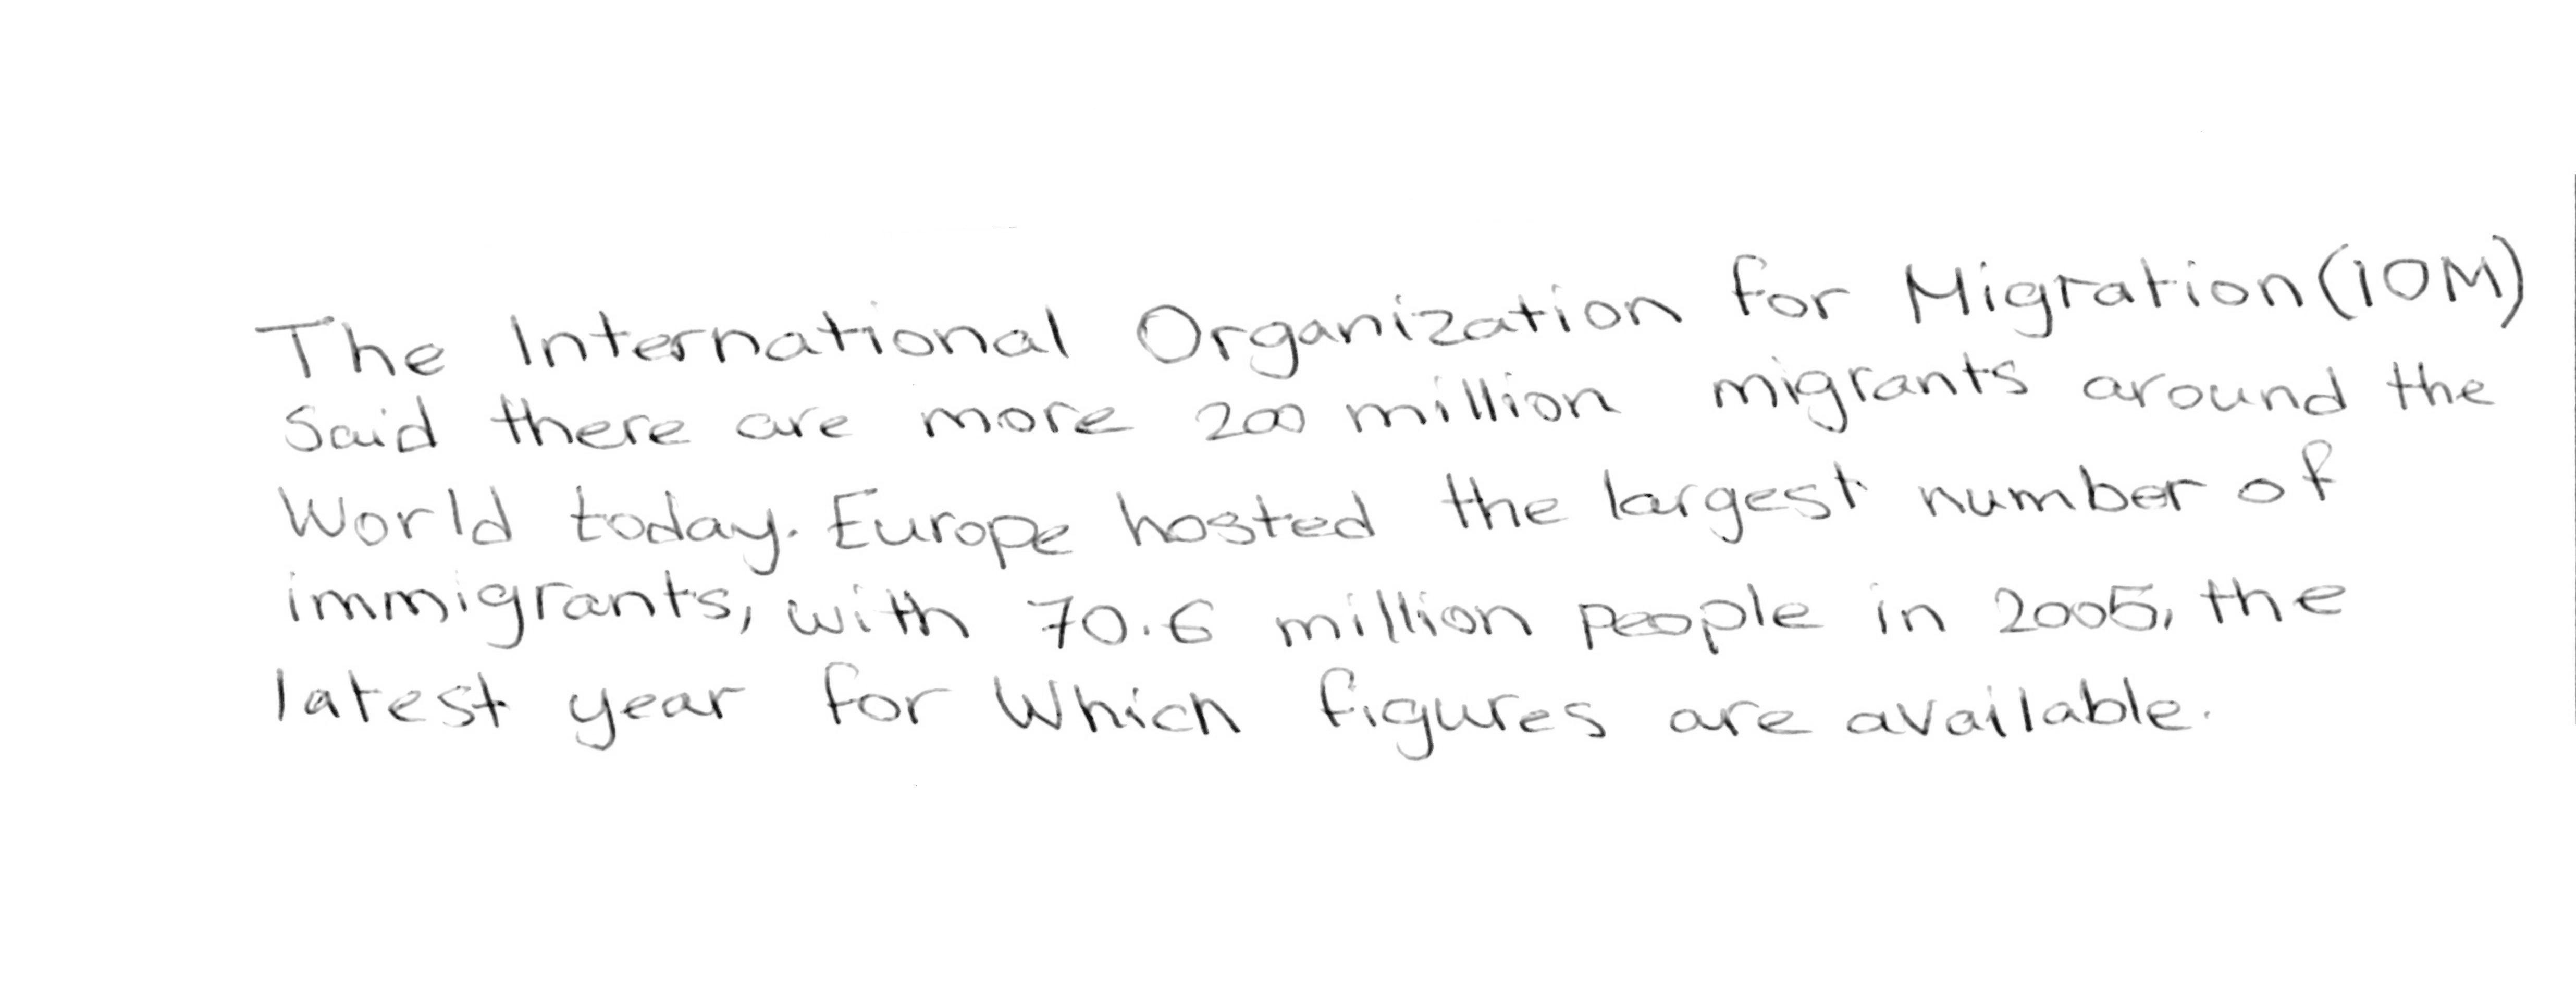 The International Organization for Migration (IOM)
Said there are more 200 million migrants around the
World today. Europe hosted the largest number of
immigrants, with 70.6 million people in 2005, the
latest year for Which figures are available.